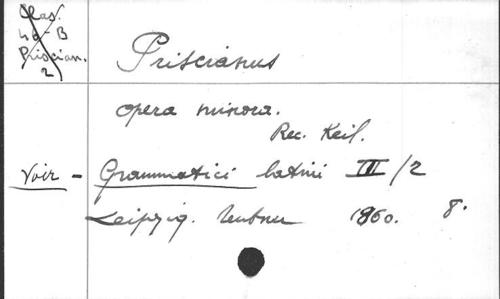 Clas.
40-B
Priscian.
2
Priscianus
opera minora.
Rec. Keil.
Voir - Grammatici latini III/2
Leipzig. Teubner 1860. 8°